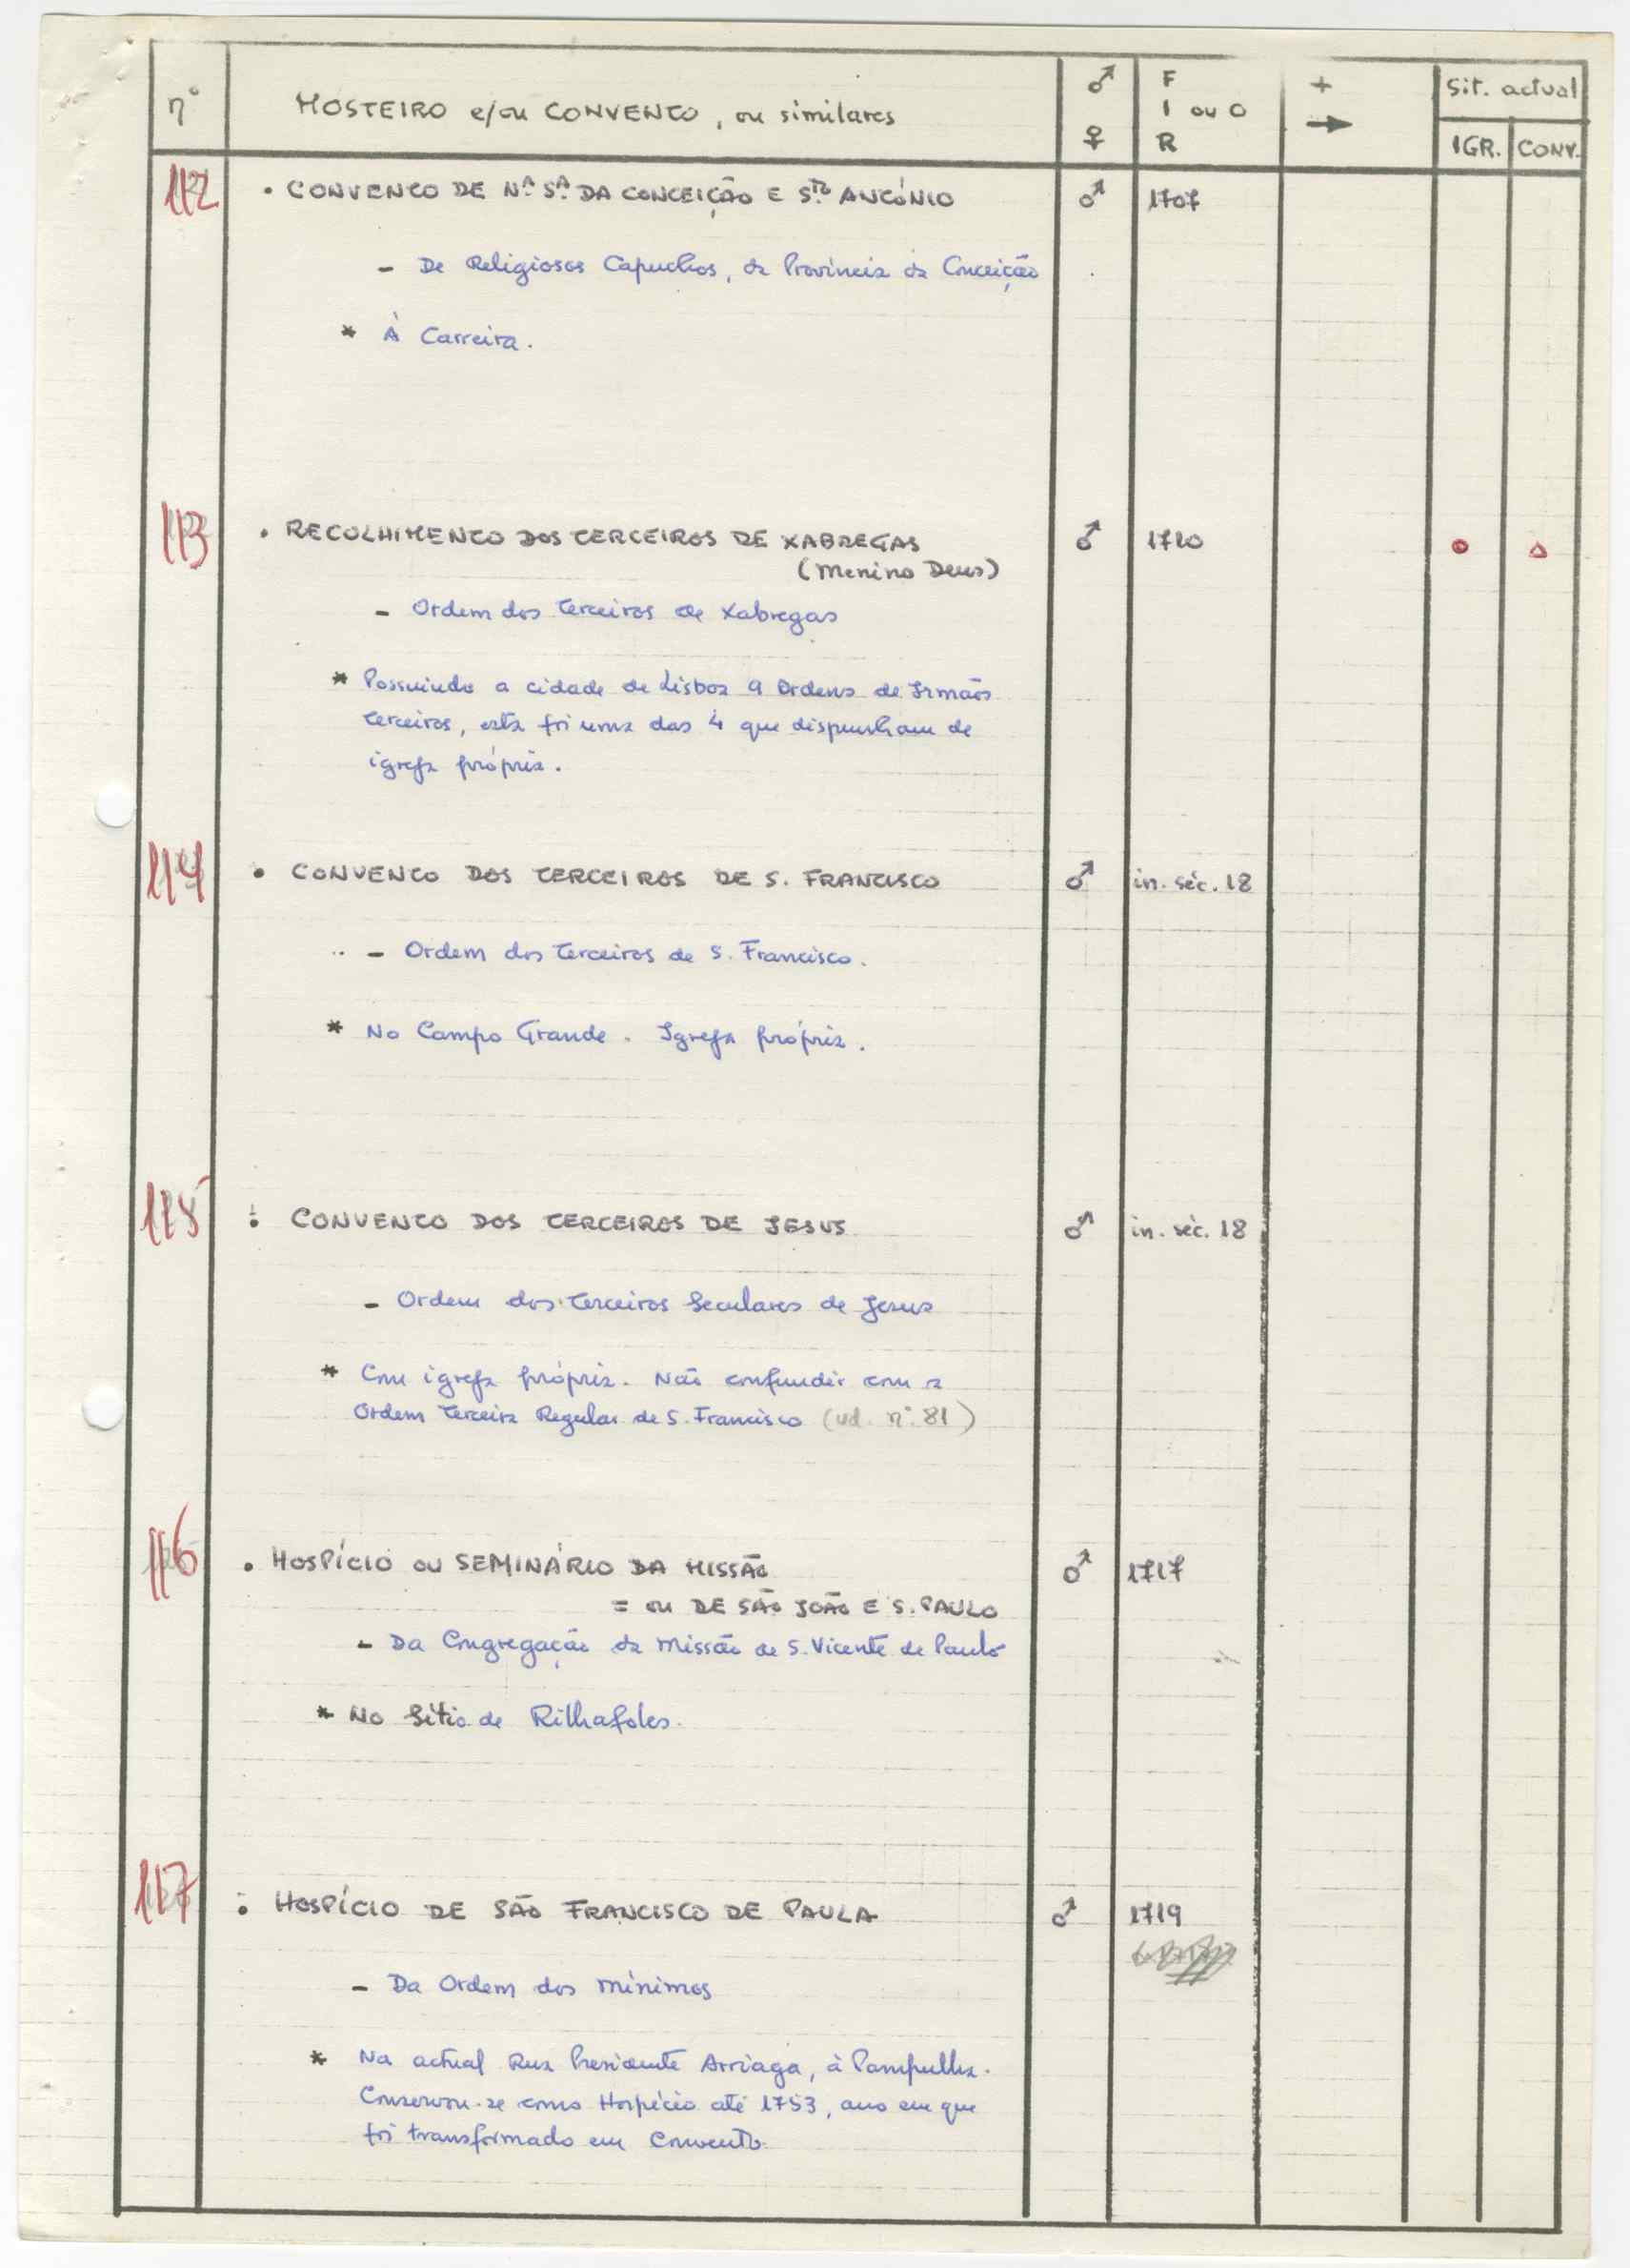 nº MOSTEIRO e/ou CONVENTO, ou similares ♂ ♀ F I ou O R + → Sit. actual IGR. CONV.
112 • CONVENTO DE Nª Sª DA CONCEIÇÃO E Stº ANTÓNIO ♂ 1707
- De Religiosos Capuchos, da Província da Conceição
* À Carreira.
113 • RECOLHIMENTO DOS TERCEIROS DE XABREGAS ♂ 1710
(Menino Deus)
- Ordem dos Terceiros de Xabregas
* Possuindo a cidade de Lisboa 9 Ordens de Irmãos
Terceiros, esta foi uma das 4 que dispunham de
igreja própria.
114 • CONVENTO DOS TERCEIROS DE S. FRANCISCO ♂ in. séc. 18
- Ordem dos Terceiros de S. Francisco.
* No Campo Grande. Igreja própria.
115 • CONVENTO DOS TERCEIROS DE JESUS ♂ in. séc. 18
- Ordem dos Terceiros Seculares de Jesus
* Com igreja própria. Não confundir com a
Ordem Terceira Regular de S. Francisco (vd. nº. 81)
116 • HOSPÍCIO OU SEMINÁRIO DA MISSÃO ♂ 1717
= ou DE SÃO JOÃO E S. PAULO
- Da Congregação da Missão de S. Vicente de Paulo
* No Sítio de Rilhafoles.
117 • HOSPÍCIO DE SÃO FRANCISCO DE PAULA ♂ 1719
- Da Ordem dos Mínimos
* Na actual Rua Presidente Arriaga, à Pampulha.
Conservou-se como Hospício até 1753, ano em que
foi transformado em Convento.